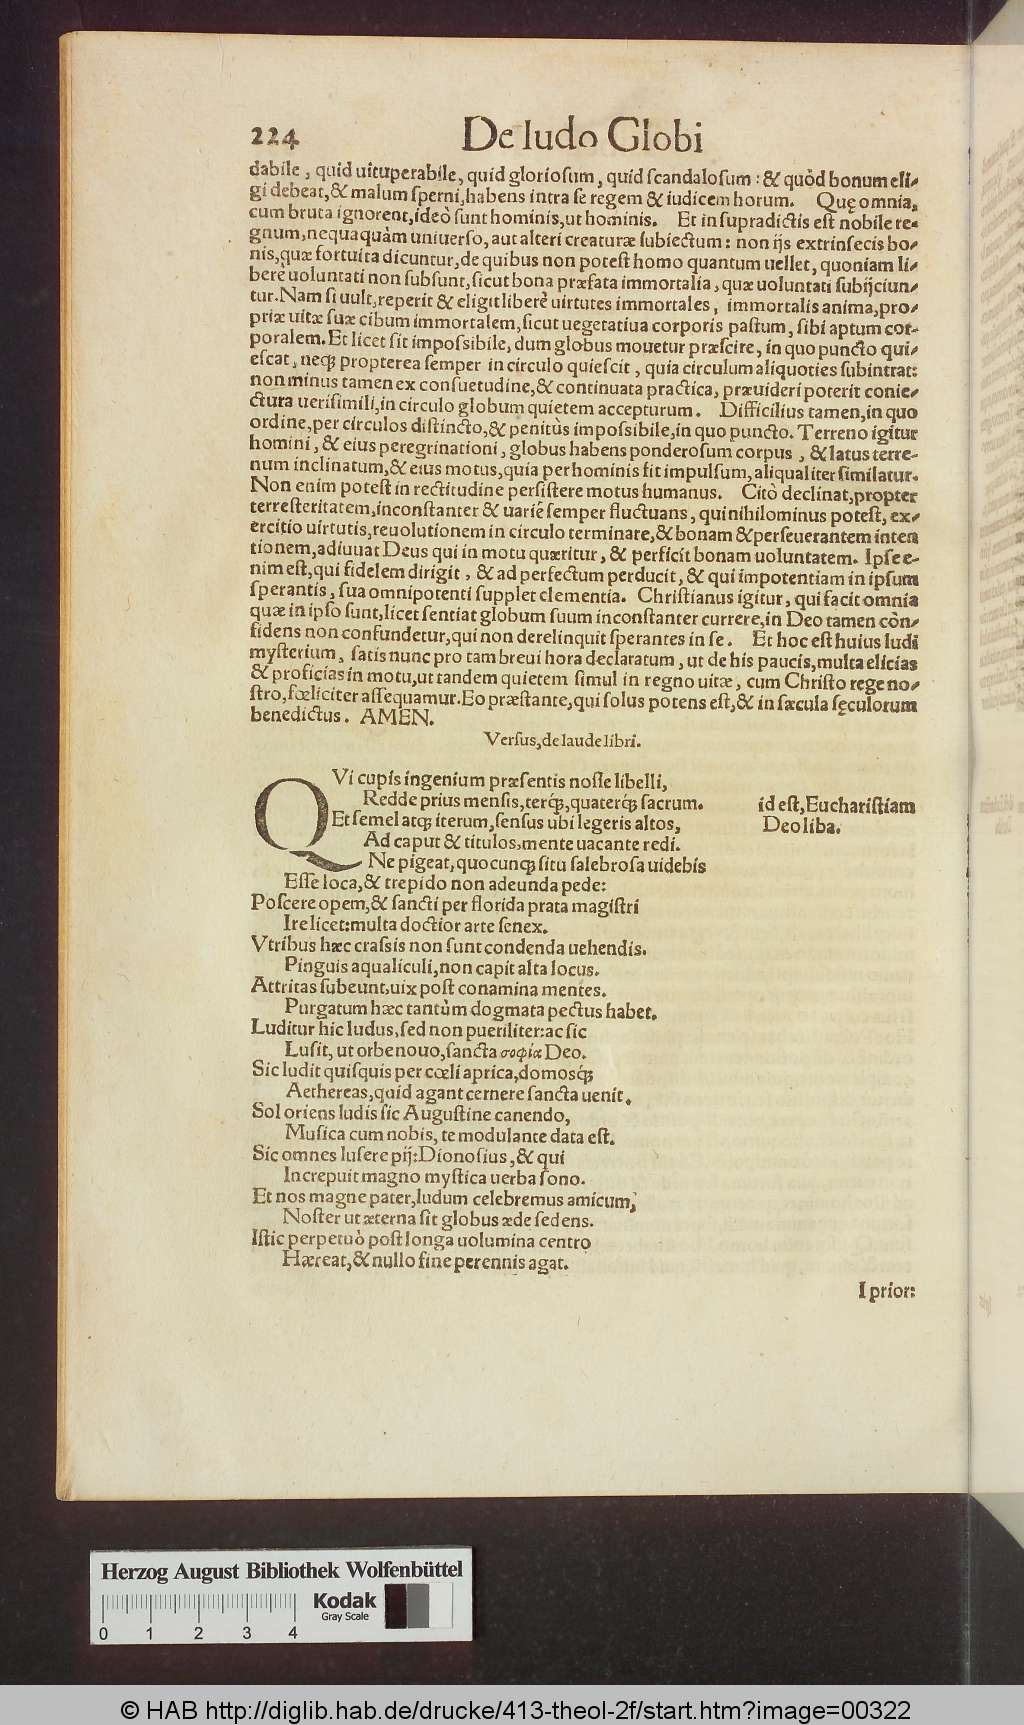 224 De ludo Globi
dabile, quid uituperabile, quid gloriosum, quid scandalosum: & quòd bonum eli-
gi debeat, & malum sperni, habens intra se regem & iudicem horum. Quę omnia,
cum bruta ignorent, ideò sunt hominis, ut hominis. Et in supradictis est nobile re-
gnum, nequaquàm uniuerso, aut alteri creaturæ subiectum: non ijs extrinsecis bo-
nis, quæ fortuita dicuntur, de quibus non potest homo quantum uellet, quoniam li-
berè uoluntati non subsunt, sicut bona præfata immortalia, quæ uoluntati subijciun-
tur. Nam si uult, reperit & eligit liberè uirtutes immortales, immortalis anima, pro-
priæ uitæ suæ cibum immortalem, sicut uegetatiua corporis pastum, sibi aptum cor-
poralem. Et licet sit impossibile, dum globus mouetur præscire, in quo puncto qui-
escat, neq; propterea semper in circulo quiescit, quia circulum aliquoties subintrat:
non minus tamen ex consuetudine, & continuata practica, præuideri poterit conie-
ctura uerisimili, in circulo globum quietem accepturum. Difficilius tamen, in quo
ordine, per circulos distincto, & penitùs impossibile, in quo puncto. Terreno igitur
homini, & eius peregrinationi, globus habens ponderosum corpus, & latus terre-
num inclinatum, & eius motus, quia per hominis fit impulsum, aliqualiter similatur.
Non enim potest in rectitudine persistere motus humanus. Citò declinat, propter
terrestreitatem, inconstanter & uariè semper fluctuans, qui nihilominus potest, ex-
ercitio uirtutis, reuolutionem in circulo terminare, & bonam & perseuerantem inten
tionem, adiuuat Deus qui in motu quæritur, & perficit bonam uoluntatem. Ipse e-
nim est, qui fidelem dirigit, & ad perfectum perducit, & qui impotentiam in ipsum
sperantis, sua omnipotenti supplet clementia. Christianus igitur, qui facit omnia
quæ in ipso sunt, licet sentiat globum suum inconstanter currere, in Deo tamen còn-
fidens non confundetur, qui non derelinquit sperantes in se. Et hoc est huius ludi
mysterium, satis nunc pro tam breui hora declaratum, ut de his paucis, multa elicias
& proficias in motu, ut tandem quietem simul in regno uitæ, cum Christo rege no-
stro, fœliciter assequamur. Eo præstante, qui solus potens est, & in sæcula sęculorum
benedictus. AMEN.
Versus, de laude libri.
QVi cupis ingenium præsentis nosse libelli,
Redde prius mensis, terq́;, quaterq́; sacrum. id est, Euchariſtiam
Et semel atq; iterum, sensus ubi legeris altos, Deo liba.
Ad caput & titulos, mente uacante redi.
Ne pigeat, quocunq; situ salebrosa uidebis
Esse loca, & trepido non adeunda pede:
Poscere opem, & sancti per florida prata magistri
Ire licet: multa doctior arte senex.
Vtribus hæc crassis non sunt condenda uehendis.
Pinguis aqualiculi, non capit alta locus.
Attritas subeunt, uix post conamina mentes.
Purgatum hæc tantùm dogmata pectus habet.
Luditur hic ludus, sed non pueriliter: ac sic
Lusit, ut orbe nouo, sancta σοφία Deo.
Sic ludit quisquis per cœli aprica, domosq́;
Aethereas, quid agant cernere sancta uenit.
Sol oriens ludis sic Augustine canendo,
Musica cum nobis, te modulante data est.
Sic omnes lusere pij: Dionosius, & qui
Increpuit magno mystica uerba sono.
Et nos magne pater, ludum celebremus amicum,
Noster ut æterna sit globus æde sedens.
Istic perpetuò post longa uolumina centro
Hæreat, & nullo fine perennis agat.
I prior:
Herzog August Bibliothek Wolfenbüttel
Kodak
Gray Scale
0 1 2 3 4
© HAB http://diglib.hab.de/drucke/413-theol-2f/start.htm?image=00322